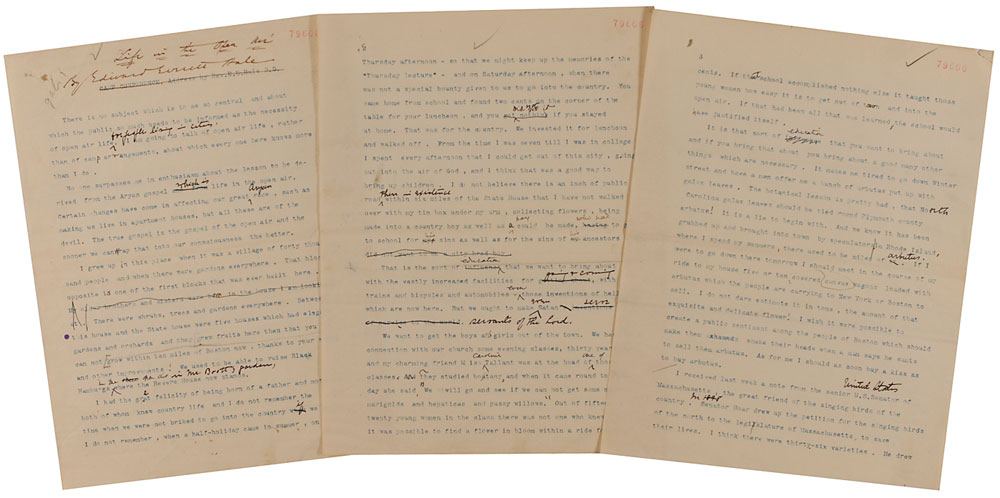 79606
Life in the Open Air
By Edward Everett Hale
There is no subject which is so central and about
which the public so much needs to be informed as the necessity
for people living in cities.
of open air life. I am going to talk of open air life, rather
than of camp arrangements, about which every one here knows more
than I do.
No one surpasses me in enthusiasm about the lesson to be de-
rived from the Aryan gospel which is life in the open air.
Certain changes have come in affecting our great Aryan, such as
making us live in apartment houses, but all these are of the
devil. The true gospel is the gospel of the open air and the
sooner we can get that into our consciousness the better.
I grew up in this place when it was a village of forty thou-
sand people and when there were gardens everywhere. That block
opposite is one of the first blocks that was ever built here.
My brothers and sisters were born in the house I am
There were shrubs, trees and gardens everywhere. Between
this house and the State House were five houses which had
gardens and orchards and they grew fruits here then that you
can not grow within ten miles of Boston now, thanks to your
and other improvements! We used to be able to raise Black
as also in Mr Booth's garden,
Hamburgs where the Revere House now stands.
I had the great felicity of being born of a father and
both of whom knew country life and I do not remember the
time when we were not bribed to go into the country if we
I do not remember, when a half-holiday came in summer, on
79606
2
Thursday afternoon - so that we might keep up the memories of the
"Thursday lecture" - and on Saturday afternoon, when there
was not a special bounty given to us to go into the country. You
came home from school and found two cents on the corner of the
table for your luncheon, and you got no if you stayed
at home. That was for the country. We invested it for luncheon
and walked off. From the time I was seven till I was in college
I spent every afternoon that I could get out of this city, going
out into the air of God, and I think that was a good way to
bring up children. I do not believe there is an inch of public
then in existence
road within six miles of the State House that I have not walked
over with my tin box under my arm, collecting flowers, being
made into a country boy as well as a boy could be made, who had
to school for sins as well as for the sins of ancestors
That is the sort of education that we want to bring about
with the vastly increased facilities for going & coming, with
trains and bicycles and automobiles - those inventions of hell
which are now here. But we ought to make even Satan serve
servants of the Lord.
We want to get the boys and girls out of the town. We had
connection with our church some evening classes, thirty years
and my charming friend Miss Caroline Tallant was at the head of one of these
classes, and they studied botany, and when it came round to
day she said We will go and see if we can not get some
marigolds and hepaticas and pussy willows. Out of fifteen
twenty young women in the class there was not one who knew
it was possible to find a flower in bloom within a ride for
79606
3
cents. If the school accomplished nothing else it taught those
young women how easy it is to get out of town and into the
open air. If that had been all that was learned, the school would
have justified itself.
It is that sort of education that you want to bring about
and if you bring that about you bring about a good many other
things which are necessary. It makes me tired to go down Winter
street and have a man offer me a bunch of arbutus put up with
galax leaves. The botanical lesson is pretty bad, that North
Carolina galax leaves should be tied round Plymouth county
arbutus! It is a lie to begin with. And we know it has been
grubbed up and brought into town by speculators. In Rhode Island,
where I spend my summers, there used to be miles of arbutus. If I
were to go down there tomorrow I should meet in the course of my
ride to my house five or ten covered canvas wagons loaded with
arbutus which the people are carrying to New York or Boston to
sell. I do not dare estimate it in tons, the amount of that
exquisite and delicate flower! I wish it were possible to
create a public sentiment among the people of Boston which should
make them shake their heads when a man says he wants
to sell them arbutus. As for me I should as soon buy a kiss as
to buy arbutus.
I received last week a note from the senior United States Senator of
Massachusetts, the great friend of the singing birds of the
country. In 1848 Senator Hoar drew up the petition for the singing birds
of the north to the legislature of Massachusetts, to save
their lives. I think there were thirty-six varieties. He drew